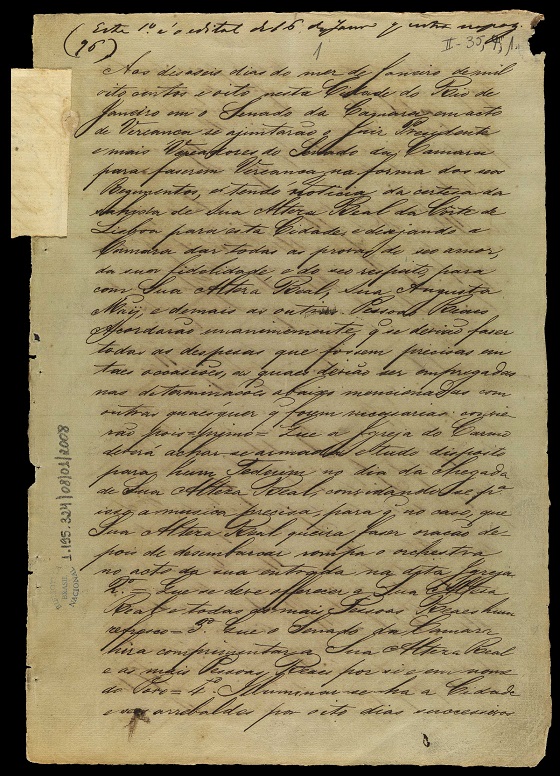 Este 1º é o edital de 16 de Janrº q entra
(96)
1
II-35,4,1
Aos desaseis dias do mez de Janeiro de mil
oito centos e oito nesta Cidade do Rio de
Janeiro em o Senado da Camara em acto
de Vereança se ajuntarão o Juiz Presidente
e mais Vereadores do Senado da Camara
para faserem Vereança na forma dos seos
Regimentos, e tendo noticia da certesa da
sahida de Sua Altesa Real da Corte de
Lisboa para esta Cidade, e desejando a
Camara dar todas as provas de seo amor,
da sua fidelidade e do seo respeito para
com Sua Altesa Real, Sua Augusta
Maÿ, e demais as outras Pessoas Reaes
Acordarão unanimemente, q se devião faser
todas as despesas que fossem precisas em
taes occasiões, as quaes devião ser empregadas
nas determinações abaixo mencionadas com
outras quaesquer q fossem necessarias
pois = primo = Que a Igreja do Carmo
deverá achar-se armada e tudo disposto
para hum Tedeum no dia da chegada
de Sua Altesa Real, convidando-se pª
isso a musica precisa, para q no caso, que
Sua Altesa Real queira faser oração de-
pois de desembarcar rompa o orchestra
no acto da sua entrada na dita Igreja
2º = Que se deve offerecer a Sua Altesa
Real e todas as mais Pessoas Reaes hum
refresco = 3º Que o Senado da Camara
hirá comprimentar a Sua Altesa Real
e as mais Pessoas Reaes por si e em nome
do Povo = 4º Illuminar-se-ha a Cidade
e seos arrebaldes por oito dias successivos
1.195.324/08/01/2008
NACIONAL